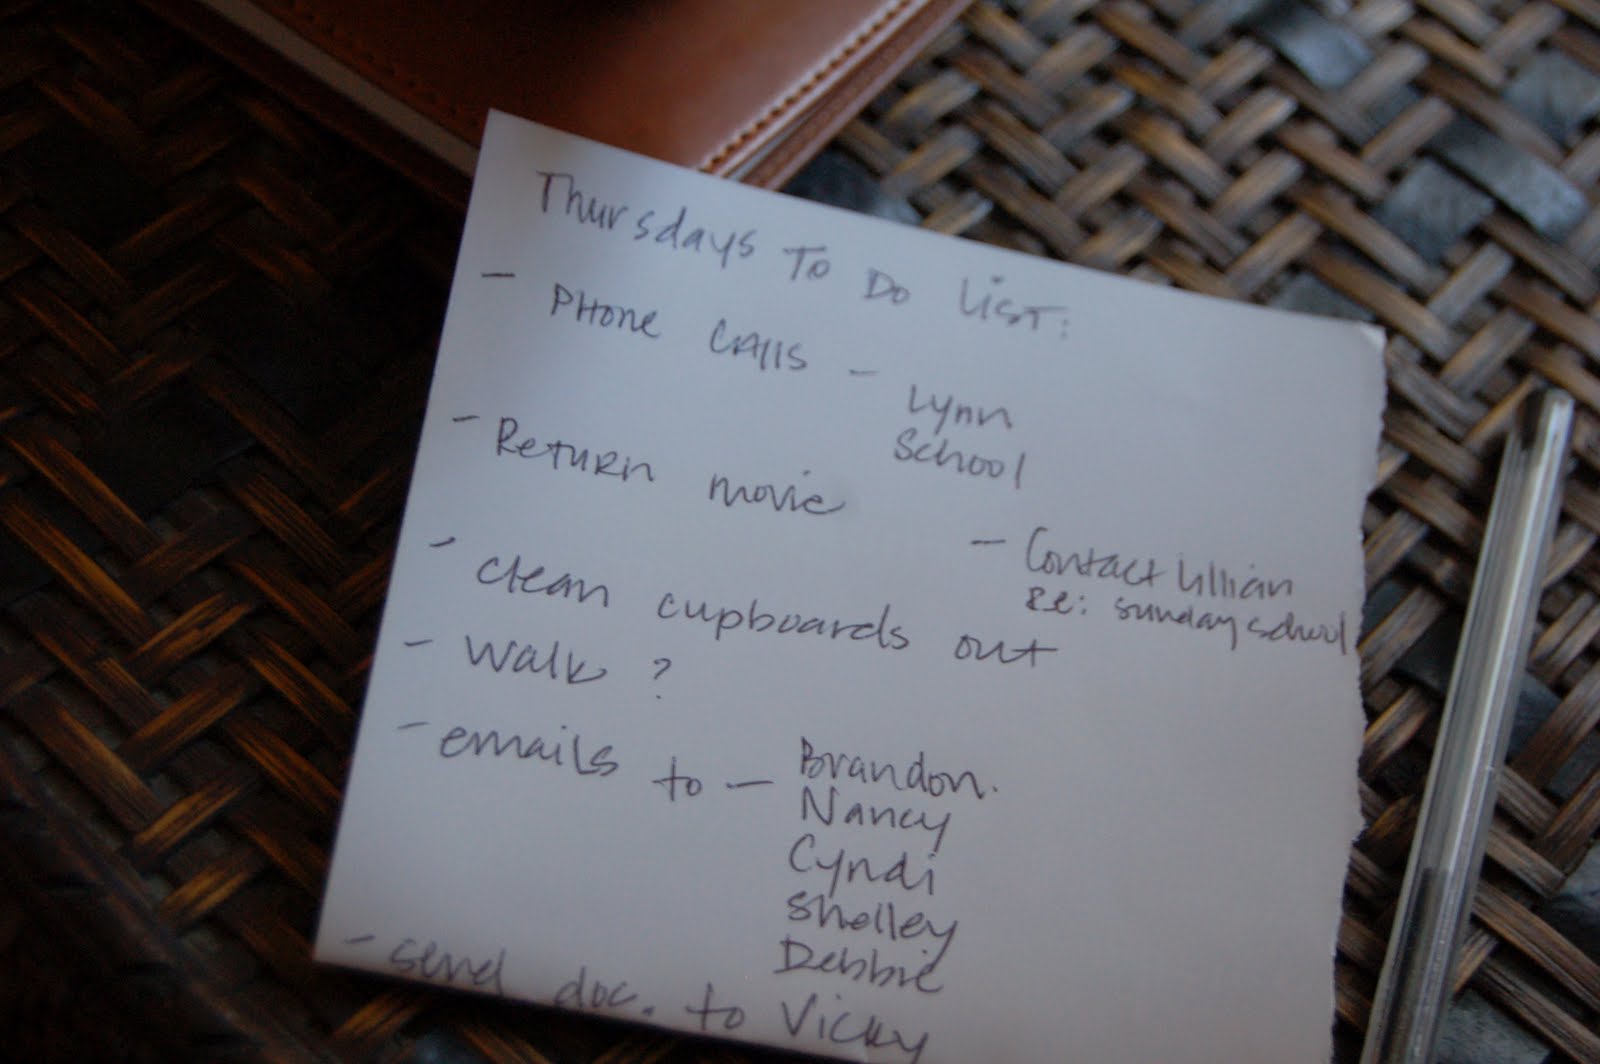 Thursdays To Do List:
- Phone calls - Lynn
School
- Return movie
- Contact Lillian
Re: Sunday school
- Clean cupboards out
- Walk ?
- emails to - Brandon.
Nancy
Cyndi
Shelley
Debbie
- send doc. to Vicky